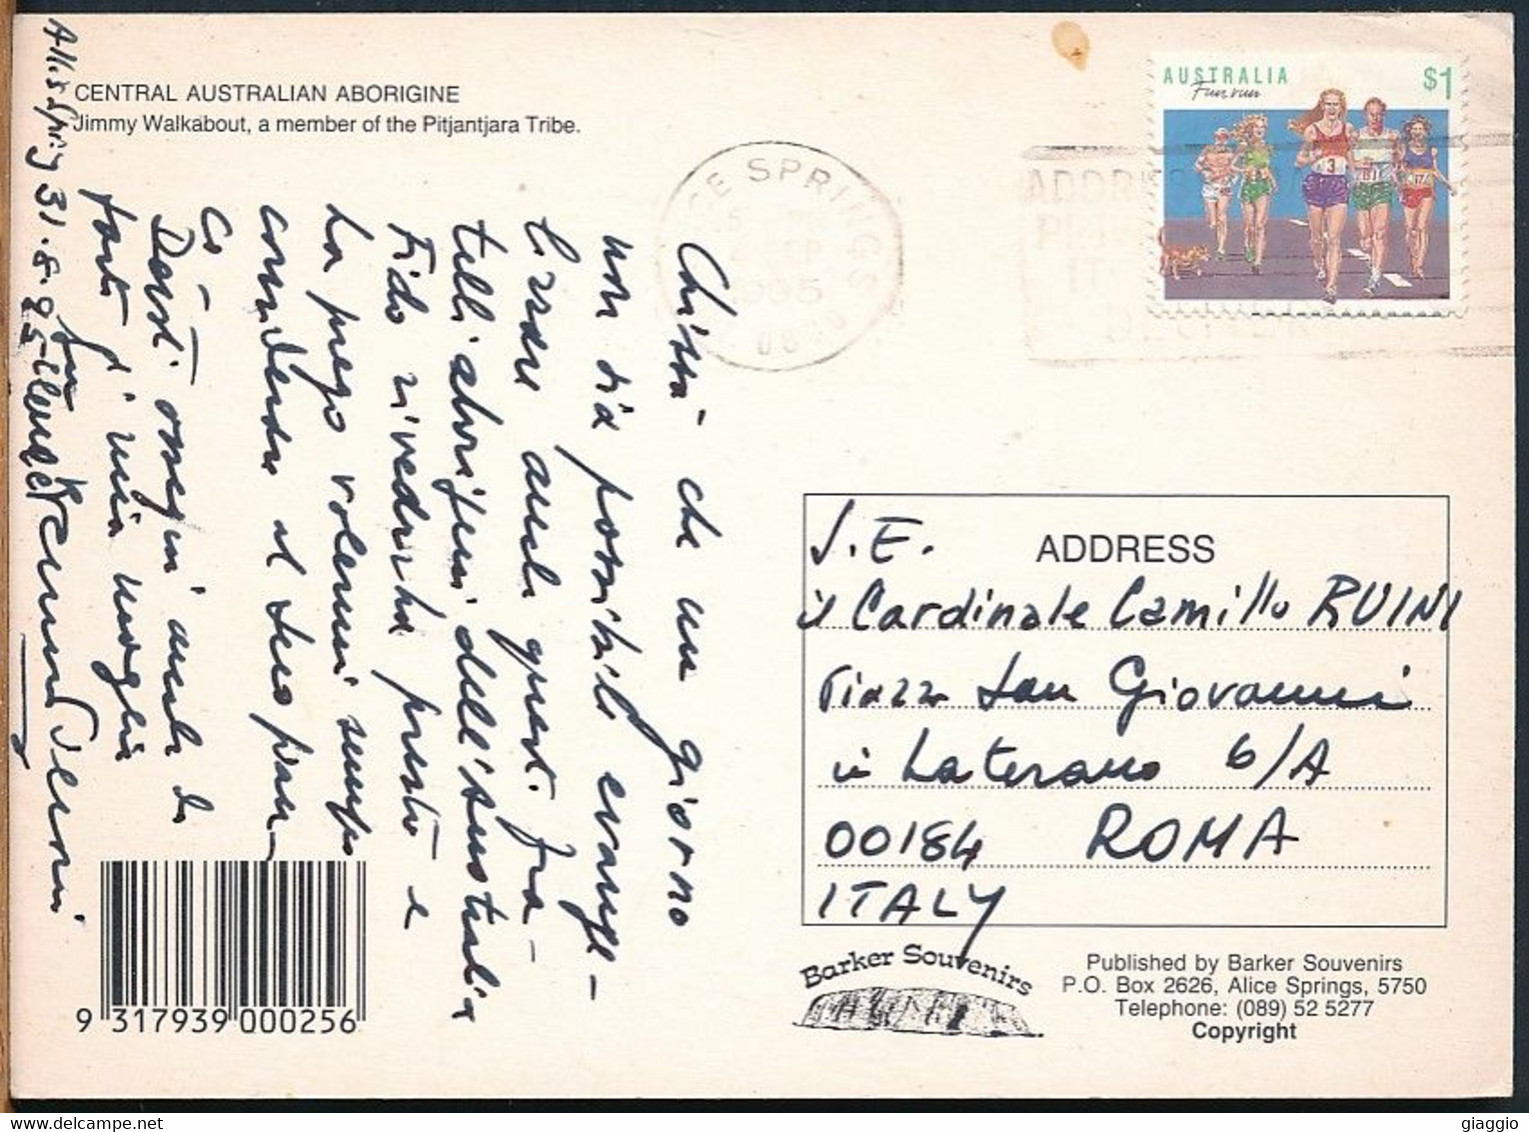 CENTRAL AUSTRALIAN ABORIGINE
Jimmy Walkabout, a member of the Pitjantjara Tribe.
AUSTRALIA $1
Fun run
3
SPRINGS
ADDRESS
Alice Spring 31.8.95
Chissà che un giorno
non sia possibile evange-
lizzare anche questi fra-
telli aborigeni dell'Australia
Fido rivederLa presto e
La prego volermi sempre
considerare al Suo fian-
co -
Devoti ossequi anche da
parte di mia moglie
Suo
ADDRESS
S.E.
il Cardinale Camillo RUINI
Piazza San Giovanni
in Laterano 6/A
00184 ROMA
ITALY
9 317939 000256
Barker Souvenirs
Published by Barker Souvenirs
P.O. Box 2626, Alice Springs, 5750
Telephone: (089) 52 5277
Copyright
giaggio